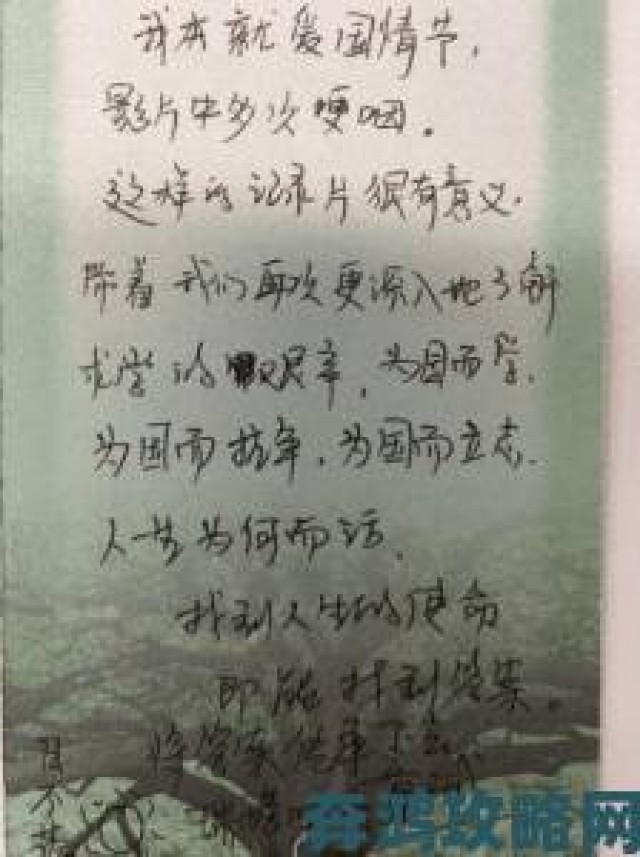 我本就爱国情节，
影片中多次哽咽。
这样的记录片很有意义.
带着我们再次更深入地了解
求学的艰辛，为国而学.
为国而抗争，为国而立志.
人一生为何而活，
找到人生的使命
即能找到答案。
将答案传承下去
奔鸿攻略网